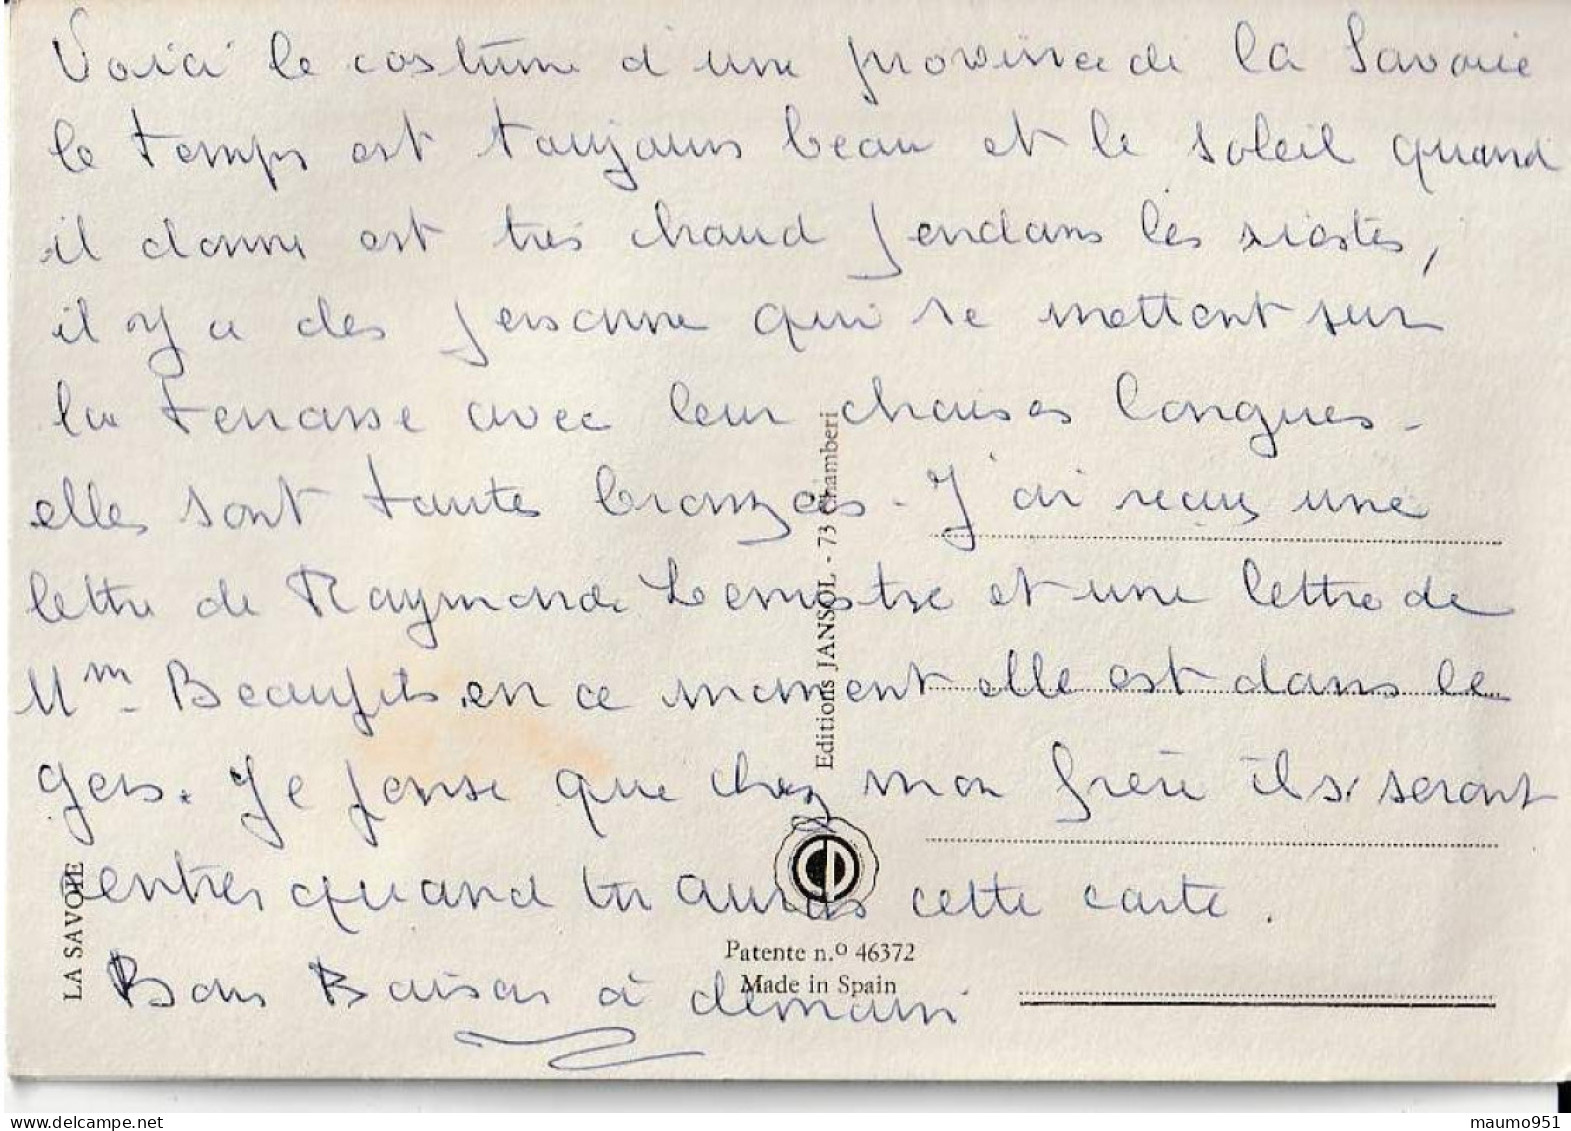 Voici le costume d'une province de la Savoie
le temps est toujours beau et le soleil quand
il donne est très chaud pendans les siestes,
il y a des personne qui se mettent sur
la terrasse avec leur chaises longues -
elles sont toutes bronzés - J'ai reçu une
lettre de Raymonde Lemistre et une lettre de
Mm - Beaufils en ce moment elle est dans le
gers. Je pense que chez mon frère ils seront
rentrés quand tu auras cette carte.
Bons Baisers à demain
LA SAVOIE
Editions JANSOL - 73 Chamberi
Patente n.º 46372
Made in Spain
maumo951